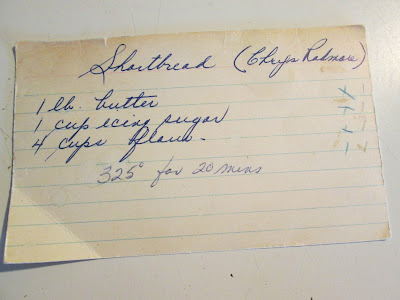 Shortbread (Chrys Radmore)
1 lb. butter
1 cup icing sugar
4 cups flour.
325° for 20 mins